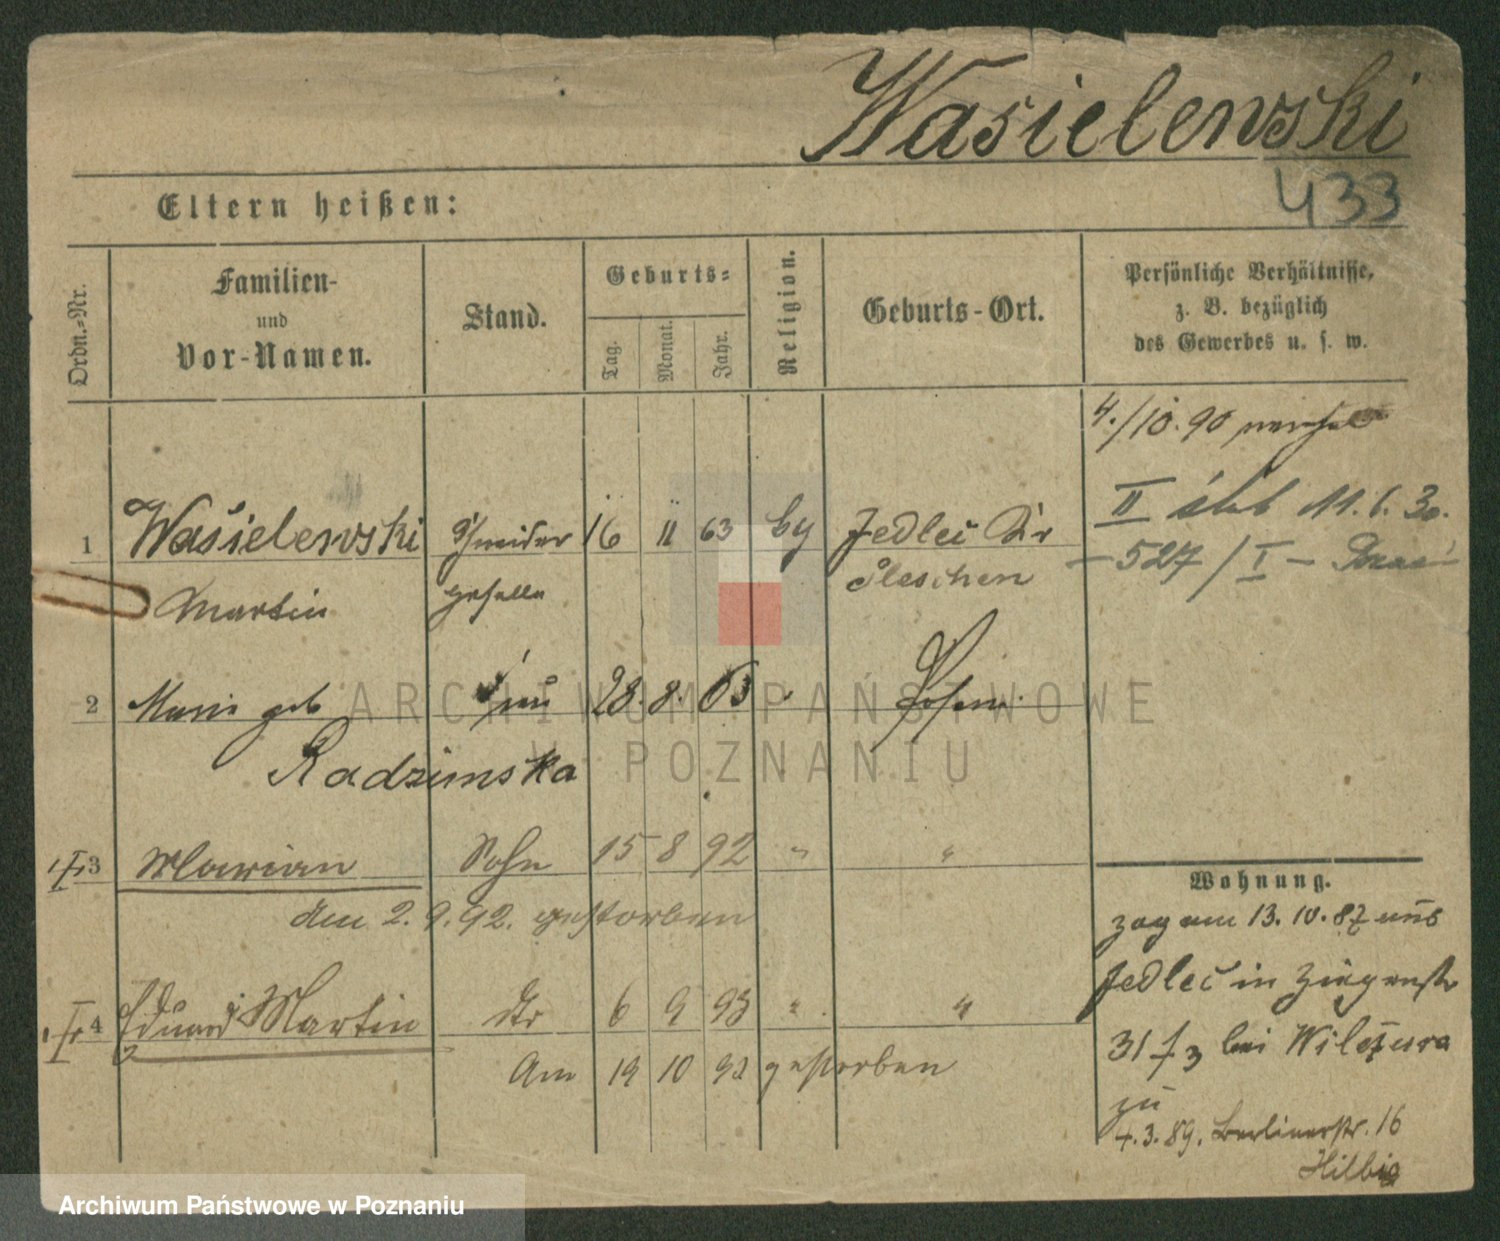 Wasielewski
433
Eltern heißen:
Ordn.-Nr.
Familien-
und
Vor-Namen.
Stand.
Geburts-
Tag.
Monat.
Jahr.
Religion.
Geburts-Ort.
Persönliche Verhältnisse,
z. B. bezüglich
des Gewerbes u. s. w.
4./10. 90
II 11. 6. 30.
1 Wasielewski Schneider 16 11 63 Jedlec Kr
– 527 / I –
Martin geselle Pleschen
2 Marie geb Frau 28. 8. 63 Posen
Radzimska
3 Marian Sohn 15 8 92 " "
Am 2. 9. 92. gestorben
4 Eduard Martin 6 9 93 " "
Am 19 10 93 gestorben
Wohnung.
zog am 13. 10. 87 aus
Jedlec in Ziegenstr
31 bei Wilczura
zu
4. 3. 89. Berlinerstr. 16
ARCHIWUM PAŃSTWOWE
W POZNANIU
Archiwum Państwowe w Poznaniu